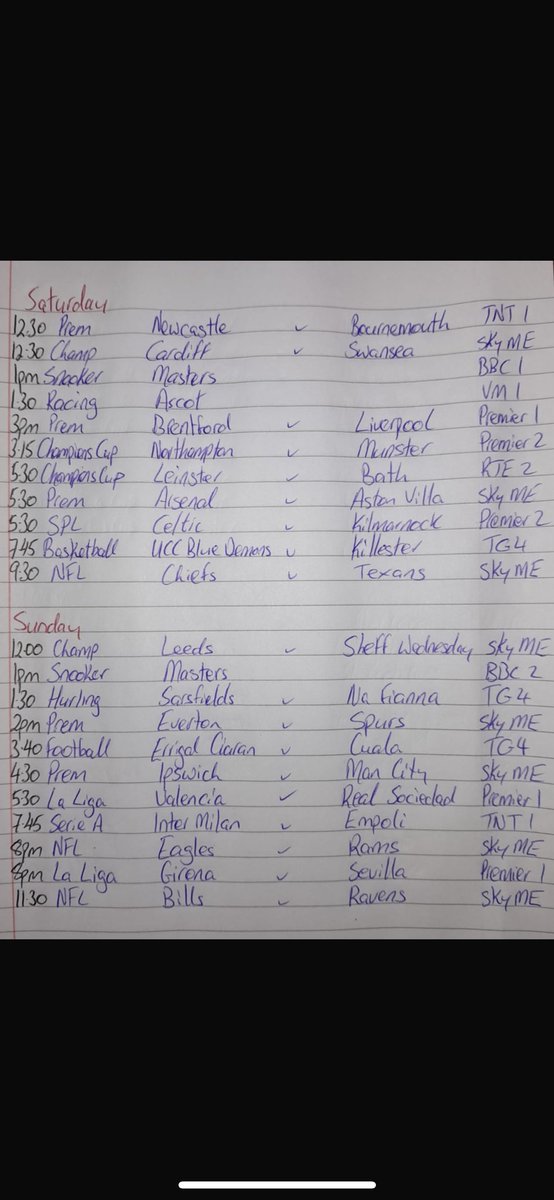 Saturday
12.30 Prem Newcastle v Bournemouth TNT 1
12:30 Champ Cardiff v Swansea Sky ME
1pm Snooker Masters BBC 1
1.30 Racing Ascot VM 1
3pm Prem Brentford v Liverpool Premier 1
3.15 Champions Cup Northampton v Munster Premier 2
5.30 Champions Cup Leinster v Bath RTE 2
5.30 Prem Arsenal v Aston Villa Sky ME
5.30 SPL Celtic v Kilmarnock Premier 2
7.45 Basketball UCC Blue Demons v Killester TG4
9.30 NFL Chiefs v Texans Sky ME
Sunday
12:00 Champ Leeds v Sheff Wednesday Sky ME
1pm Snooker Masters BBC 2
1.30 Hurling Sarsfields v Na Fianna TG4
2pm Prem Everton v Spurs Sky ME
3.40 Football Errigal Ciaran v Cuala TG4
4.30 Prem Ipswich v Man City Sky ME
5.30 La Liga Valencia v Real Sociedad Premier 1
7.45 Serie A Inter Milan v Empoli TNT 1
8pm NFL Eagles v Rams Sky ME
8pm La Liga Girona v Sevilla Premier 1
11.30 NFL Bills v Ravens Sky ME